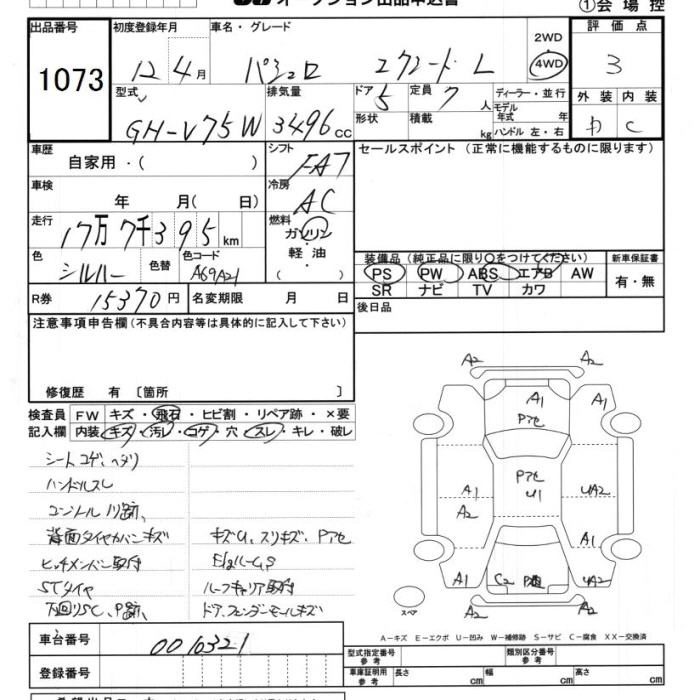 オークション出品申込書
①会場控
出品番号 初度登録年月 車名・グレード 2WD 評価点
1073 12年 4月 パジェロ エクシード L 4WD 3
型式 排気量 ドア 5 定員 7人 ディーラー・並行 外装 内装
GH-V75W 3496cc 形状 積載 kg モデル年式 年 ハンドル 左・右 D C
車歴 自家用・( ) シフト FA7 セールスポイント (正常に機能するものに限ります)
車検 年 月( 日) 冷房 AC
走行 17万7千395km 燃料 ガソリン・軽油
色 シルバー 色替 色コード A69A21
装備品 (純正品に限り○をつけてください) 新車保証書
PS PW ABS エアB AW 有・無
SR ナビ TV カワ
R券 15370円 名変期限 月 日 後日品
注意事項申告欄(不具合内容等は具体的に記入して下さい)
修復歴 有 〔箇所 〕
検査員 FW キズ・飛石・ヒビ割・リペア跡・×要
記入欄 内装 キズ・汚レ・コゲ・穴・スレ・キレ・破レ
シートコゲ、ヘタリ
ハンドルスレ
コンソール
背面タイヤカバーキズ キズU、スリキズ、Pアセ
ヒッチメンバー取付
STタイヤ ルーフキャリア取付
下回りSC、P跡、 ドア、フェンダーモールキズ
A2 A2
A1 A1
Pアセ
A1 Pアセ UA2
A2 U1
A1
A1 C2 P UA2
スペア
A-キズ E-エクボ U-凹み W-補修跡 S-サビ C-腐食 XX-交換済
車台番号 0010321
登録番号
型式指定番号 参考 類別区分番号 参考
車庫証明用 参考 長さ cm 幅 cm 高さ cm